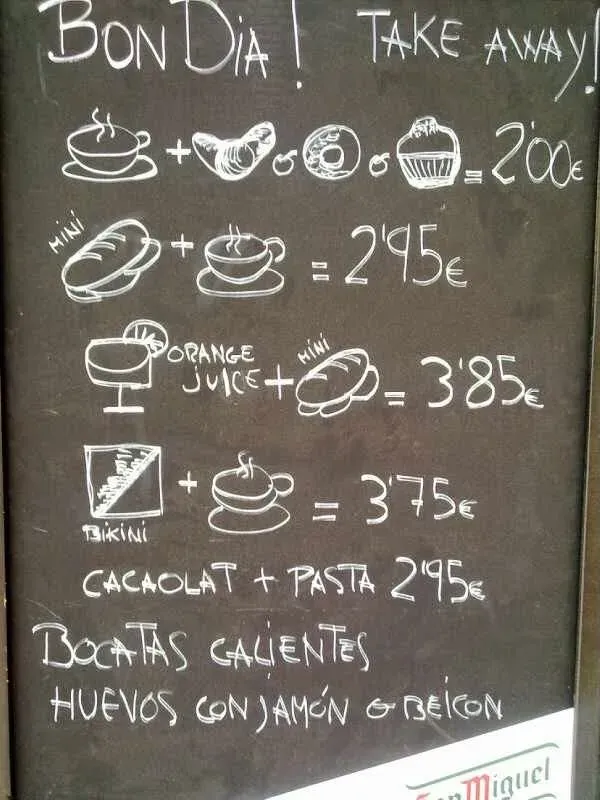 BON DIA! TAKE AWAY!
+ o o = 2'00€
MINI + = 2'95€
ORANGE JUICE + MINI = 3'85€
BIKINI + = 3'75€
CACAOLAT + PASTA 2'95€
BOCATAS CALIENTES
HUEVOS CON JAMÓN O BEICON
San Miguel